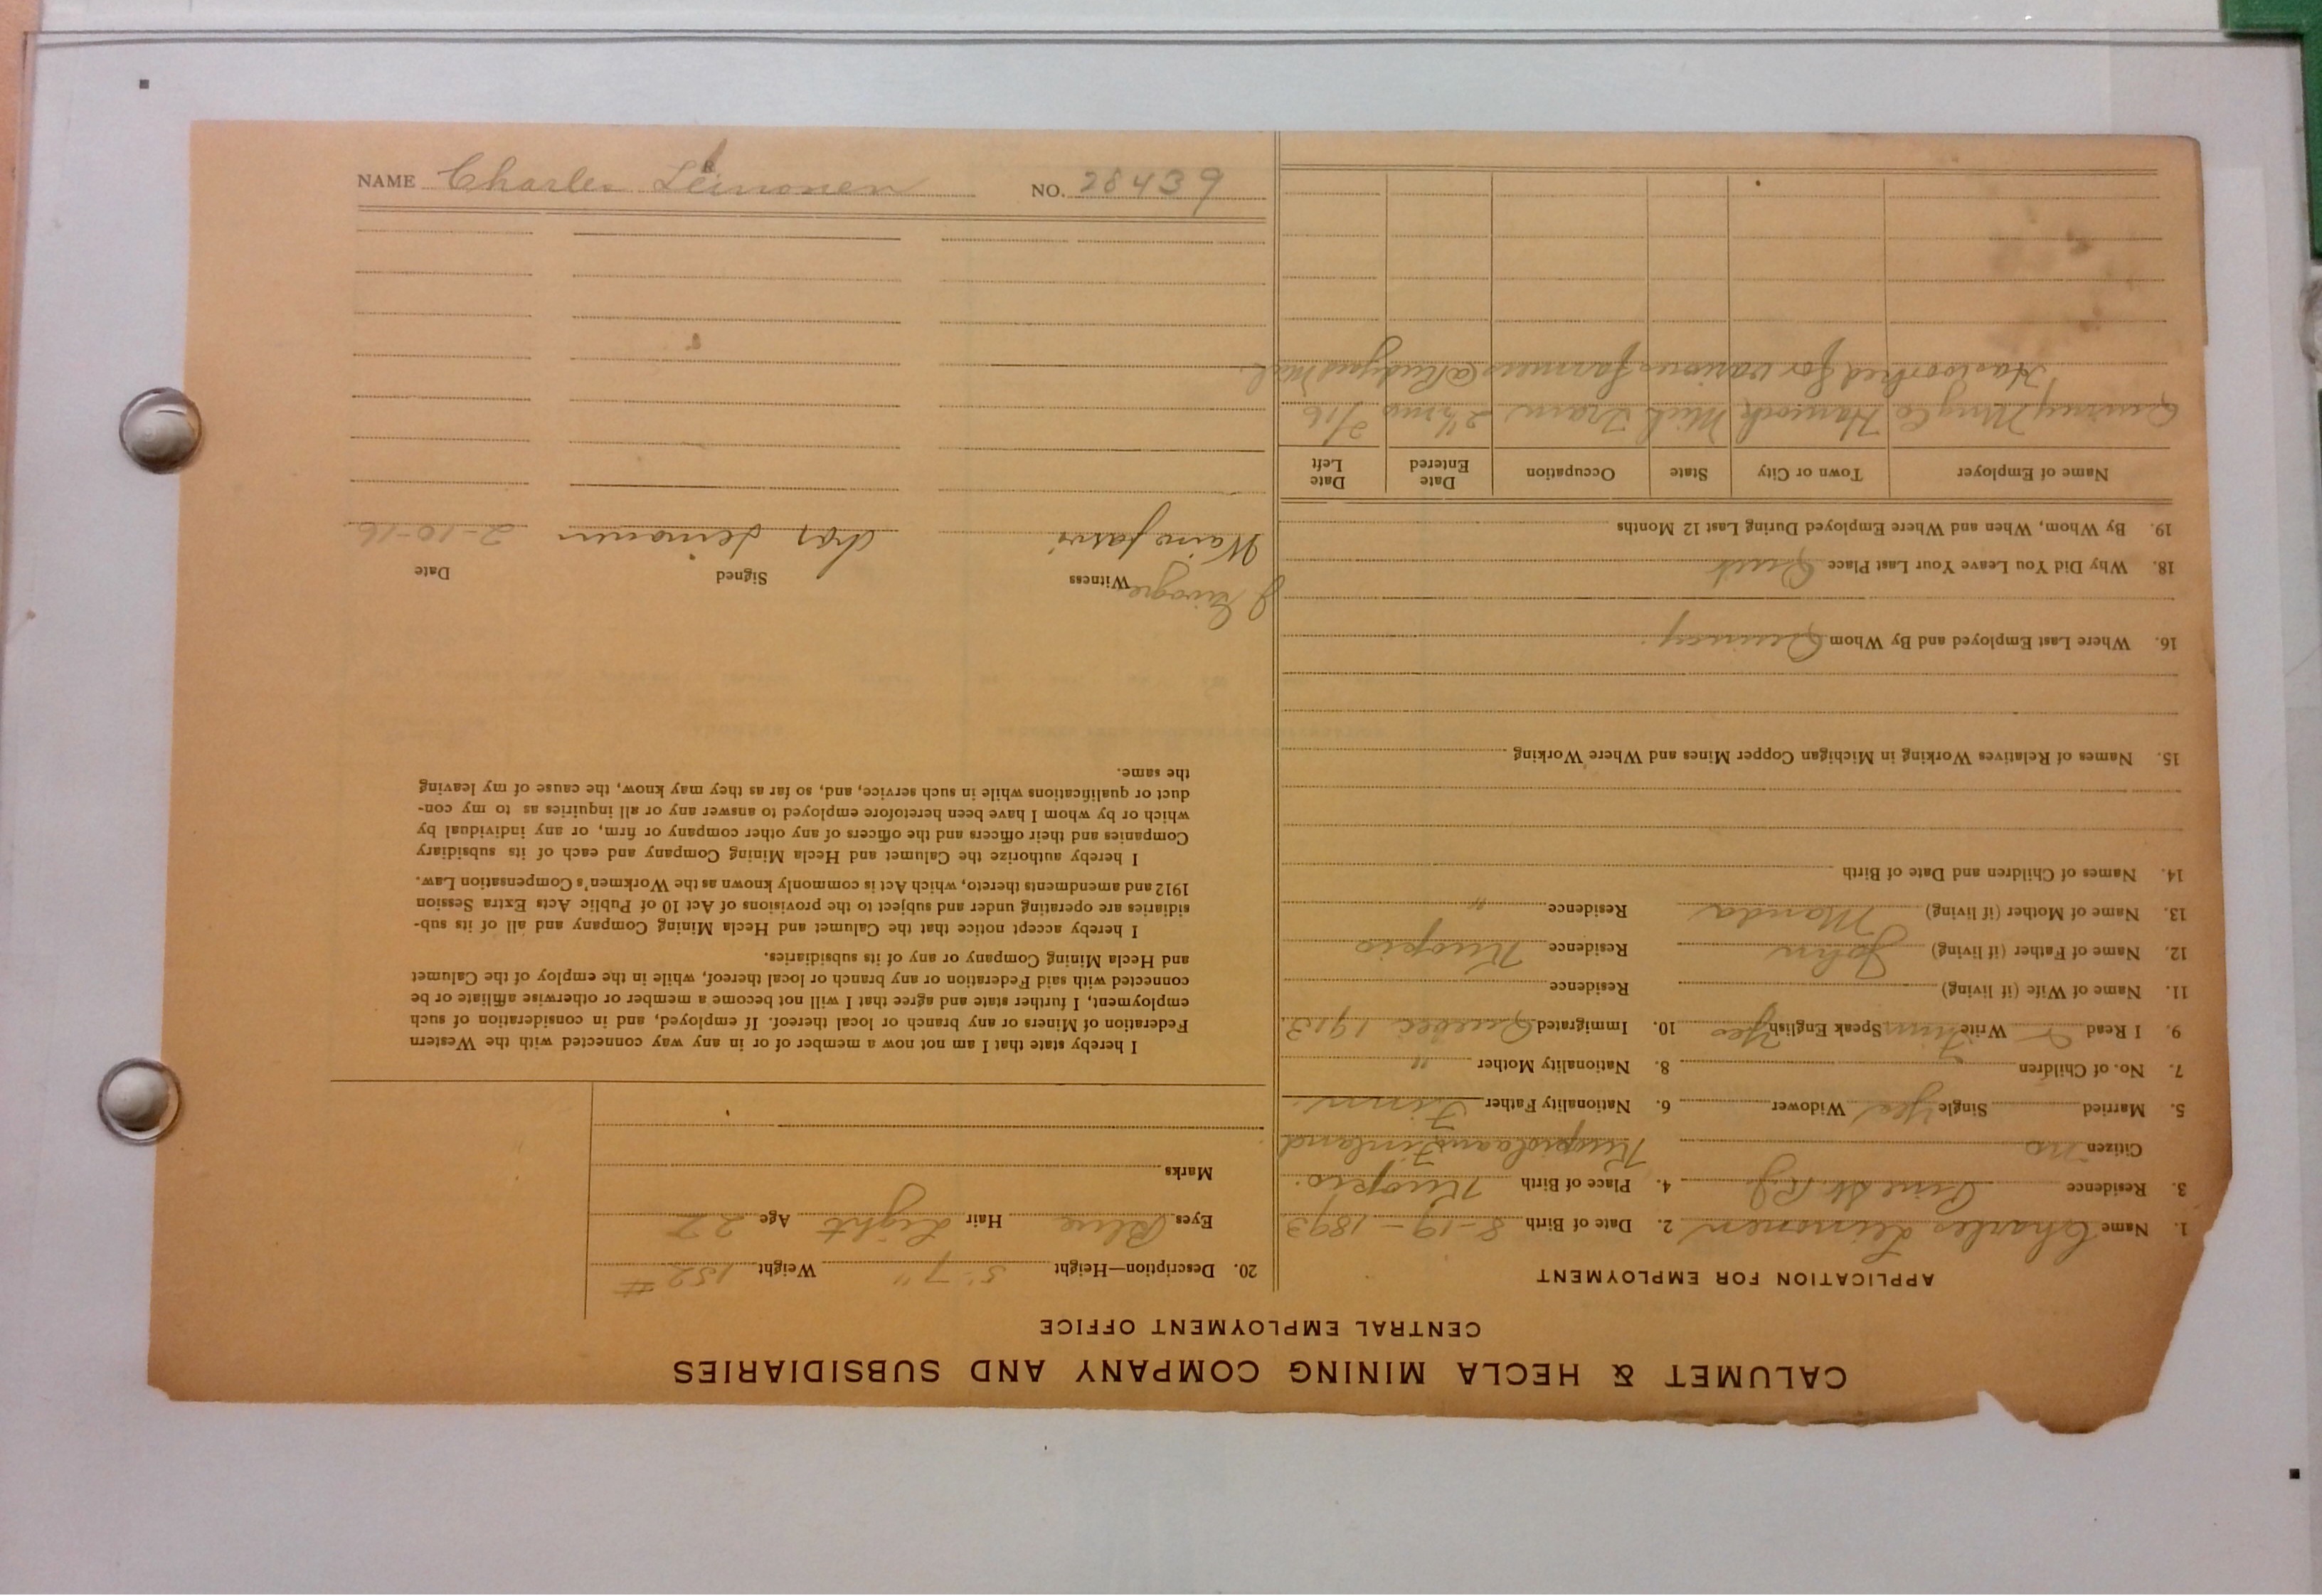 NAME Charles Leinonen NO. 28439
CALUMET & HECLA MINING COMPANY AND SUBSIDIARIES
CENTRAL EMPLOYMENT OFFICE
APPLICATION FOR EMPLOYMENT
1. Name Charles Leinonen 2. Date of Birth 8-19-1893
3. Residence Pine St. R.J. 4. Place of Birth Kuopio.
Citizen no Kuopiolaani Finland
5. Married Single Yes Widower 6. Nationality Father Finn.
7. No. of Children 8. Nationality Mother "
9. I Read & Write Finn Speak English Yes 10. Immigrated Quebec 1913
11. Name of Wife (if living) Residence
12. Name of Father (if living) John Residence Kuopio
13. Name of Mother (if living) Manda Residence "
14. Names of Children and Date of Birth
15. Names of Relatives Working in Michigan Copper Mines and Where Working
16. Where Last Employed and By Whom Quincy.
18. Why Did You Leave Your Last Place Quit
19. By Whom, When and Where Employed During Last 12 Months
Name of Employer Town or City State Occupation Date Entered Date Left
Quincy Mng Co Hancock Mich Tram 2½ mo 2/16
Has worked for various farmers @ Rudyard Mich.
20. Description—Height 5'-7" Weight 152 #
Eyes Blue Hair Light Age 22
Marks
I hereby state that I am not now a member of or in any way connected with the Western
Federation of Miners or any branch or local thereof. If employed, and in consideration of such
employment, I further state and agree that I will not become a member or otherwise affiliate or be
connected with said Federation or any branch or local thereof, while in the employ of the Calumet
and Hecla Mining Company or any of its subsidiaries.
I hereby accept notice that the Calumet and Hecla Mining Company and all of its sub-
sidiaries are operating under and subject to the provisions of Act 10 of Public Acts Extra Session
1912 and amendments thereto, which Act is commonly known as the Workmen's Compensation Law.
I hereby authorize the Calumet and Hecla Mining Company and each of its subsidiary
Companies and their officers and the officers of any other company or firm, or any individual by
which or by whom I have been heretofore employed to answer any or all inquiries as to my con-
duct or qualifications while in such service, and, so far as they may know, the cause of my leaving
the same.
Witness Signed Date
Waino Jarvi Chas Leinonen 2-10-16